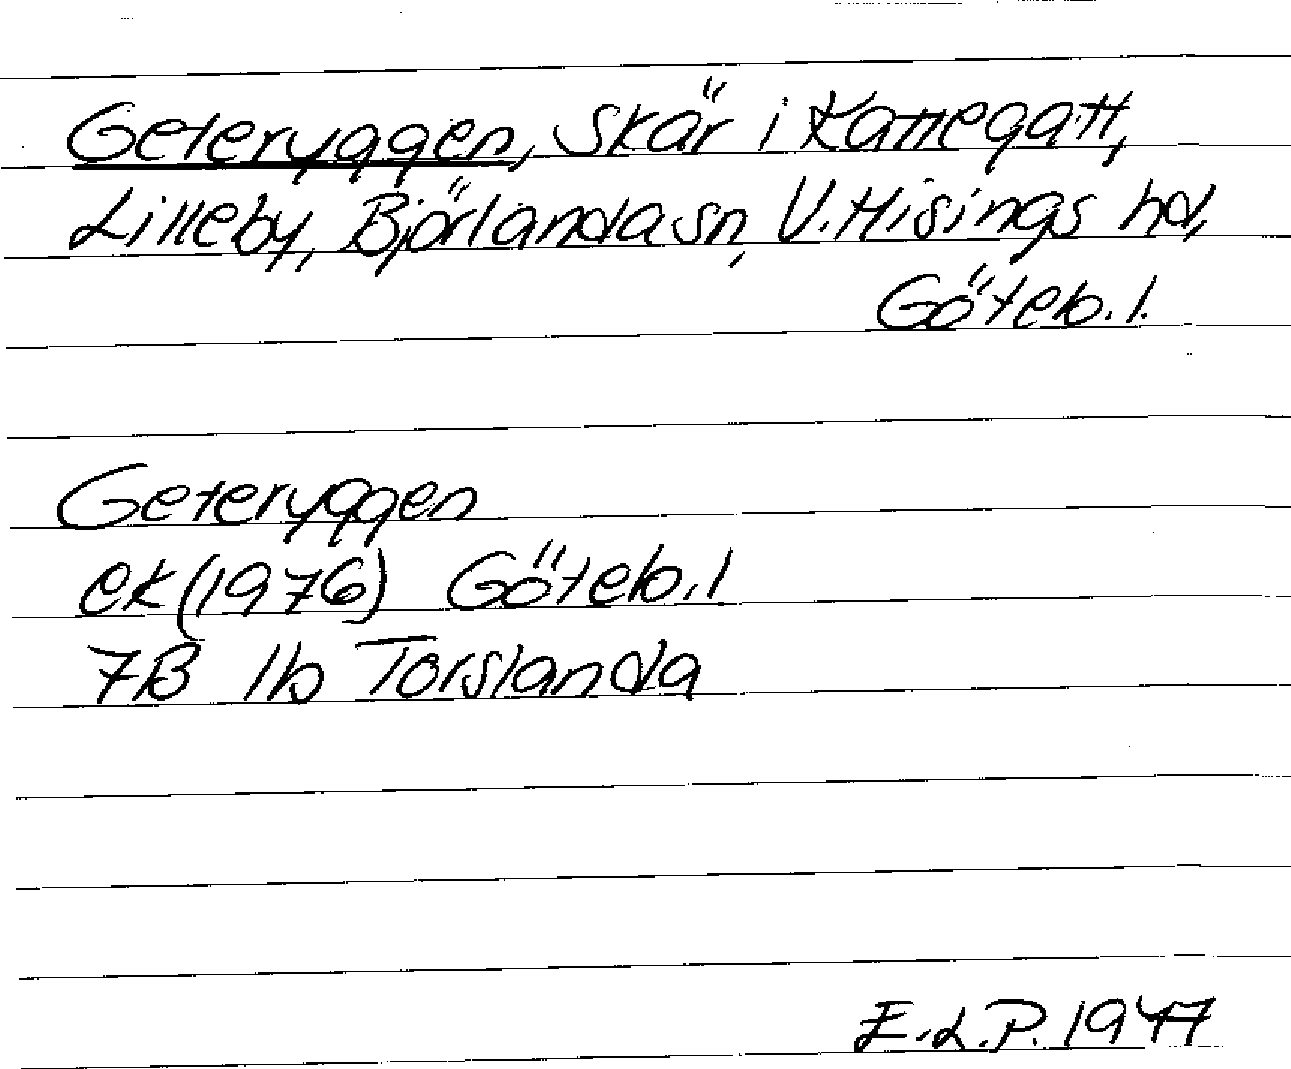 Geteryggen, skär i Kattegatt,
Lilleby, Björlanda sn, V. Hisings hd,
Göteb. l.
Geteryggen
ek (1976) Göteb. l
7B 1b Torslanda
E.L.P. 1977